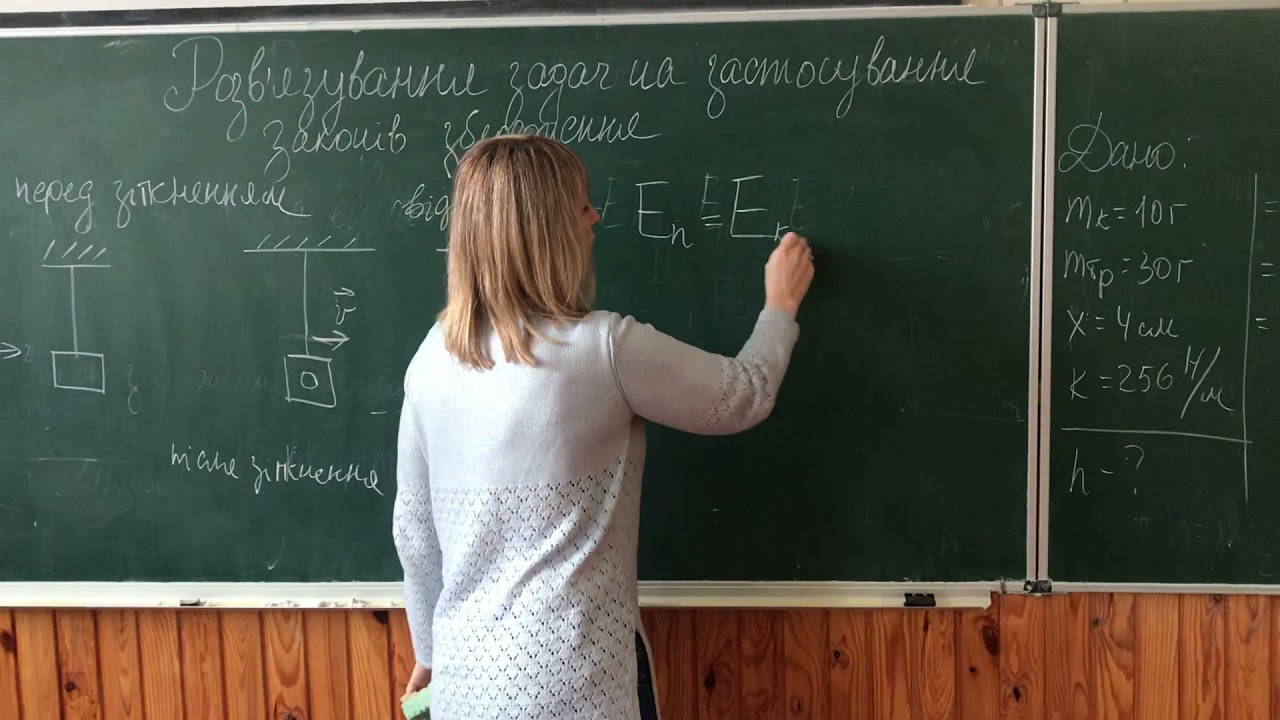 Розв'язування задач на застосування
законів збереження
перед зіткненням
від
v
після зіткнення
Eп = Eк
Дано:
mк = 10 г
mтр = 30 г
x = 4 см
к = 256 Н/м
h - ?